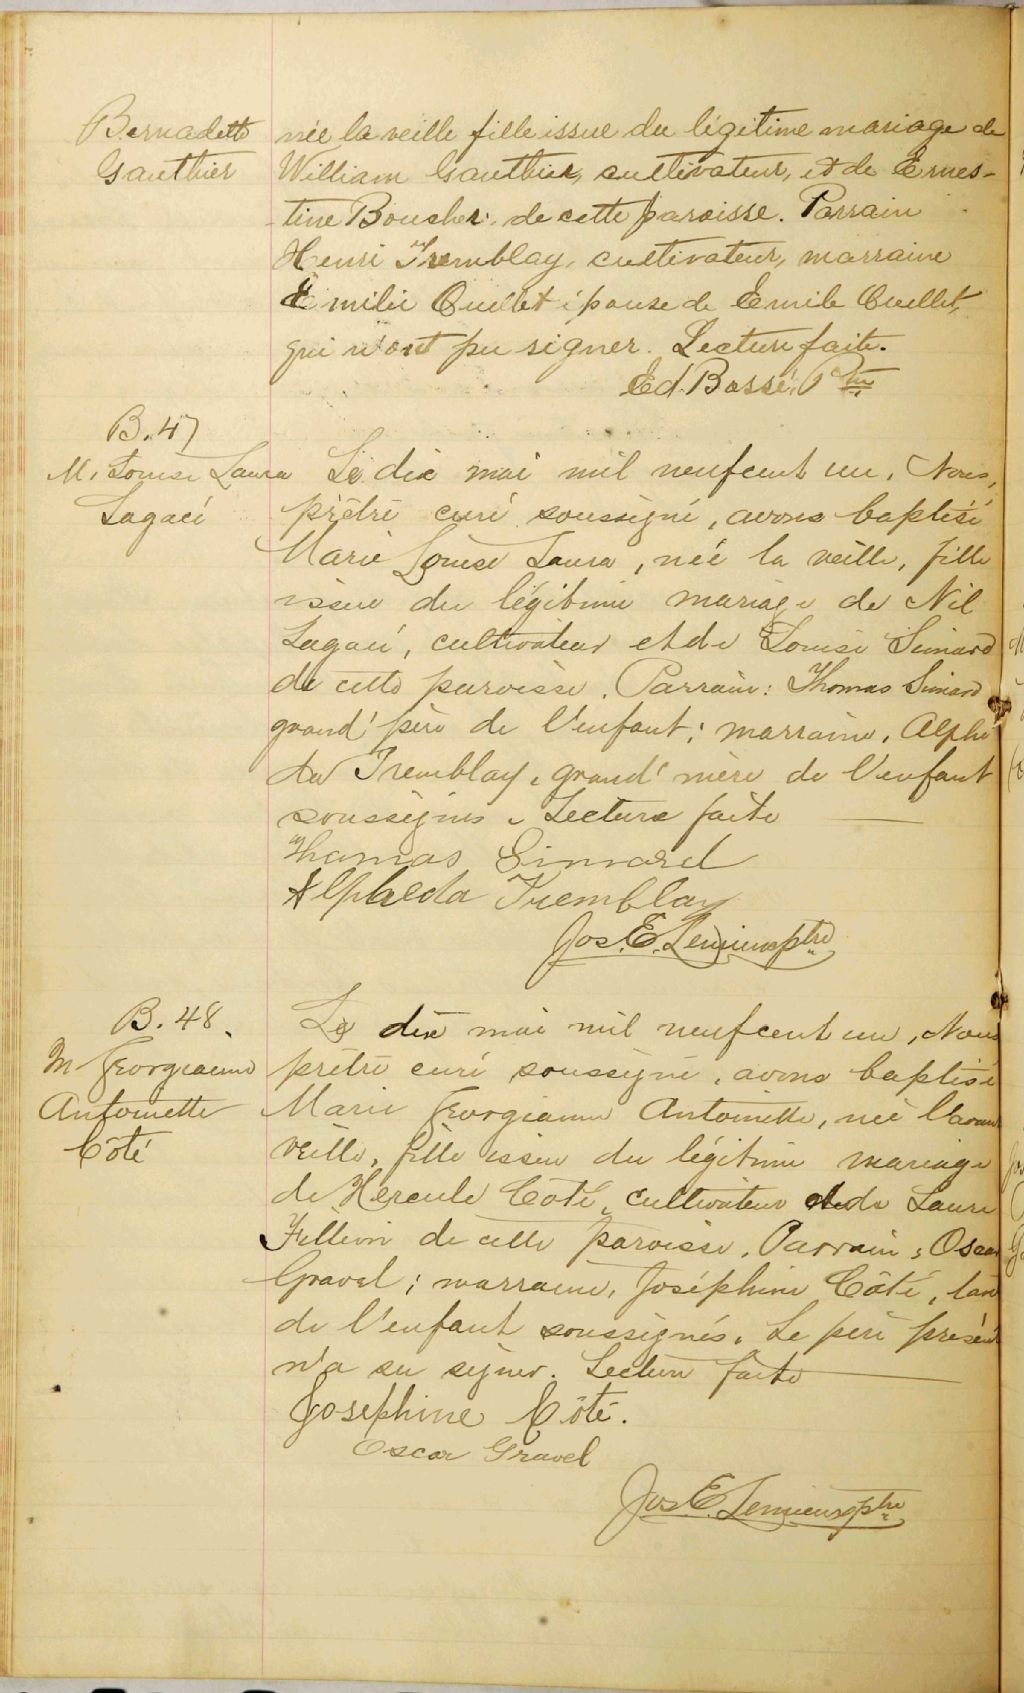 Bernadette
Gauthier
née la veille fille issue du légitime mariage de
William Gauthier, cultivateur, et de Ernes-
-tine Boucher, de cette paroisse. Parrain
Henri Tremblay, cultivateur, marraine
Emilie Ouellet épouse de Emile Ouellet,
qui n'ont pu signer. Lecture faite.
Ed. Bossé, Ptre
B. 47
M. Louise Laura
Lagacé
Le dix mai mil neufcent un, Nous,
prêtre curé soussigné, avons baptisé
Marie Louise Laura, née la veille, fille
issue du légitime mariage de Nil
Lagacé, cultivateur et de Louise Simard
de cette paroisse. Parrain: Thomas Simard
grand'père de l'enfant; marraine, Alphé
da Tremblay, grand'mère de l'enfant
soussignés. Lecture faite
Thomas Simard
Alphéda Tremblay
Jos. E. Lemieux ptre
B. 48.
M Georgianna
Antoinette
Côté
Le dix mai mil neufcent un, Nous
prêtre curé soussigné, avons baptisé
Marie Georgianna Antoinette, née l'avant
veille, fille issue du légitime mariage
de Hercule Côté, cultivateur et de Laure
Fillion de cette paroisse. Parrain, Oscar
Gravel; marraine, Joséphine Côté, tan
de l'enfant soussignés. Le père présent
n'a su signer. Lecture faite
Josephine Côté.
Oscar Gravel
Jos. E. Lemieux ptre